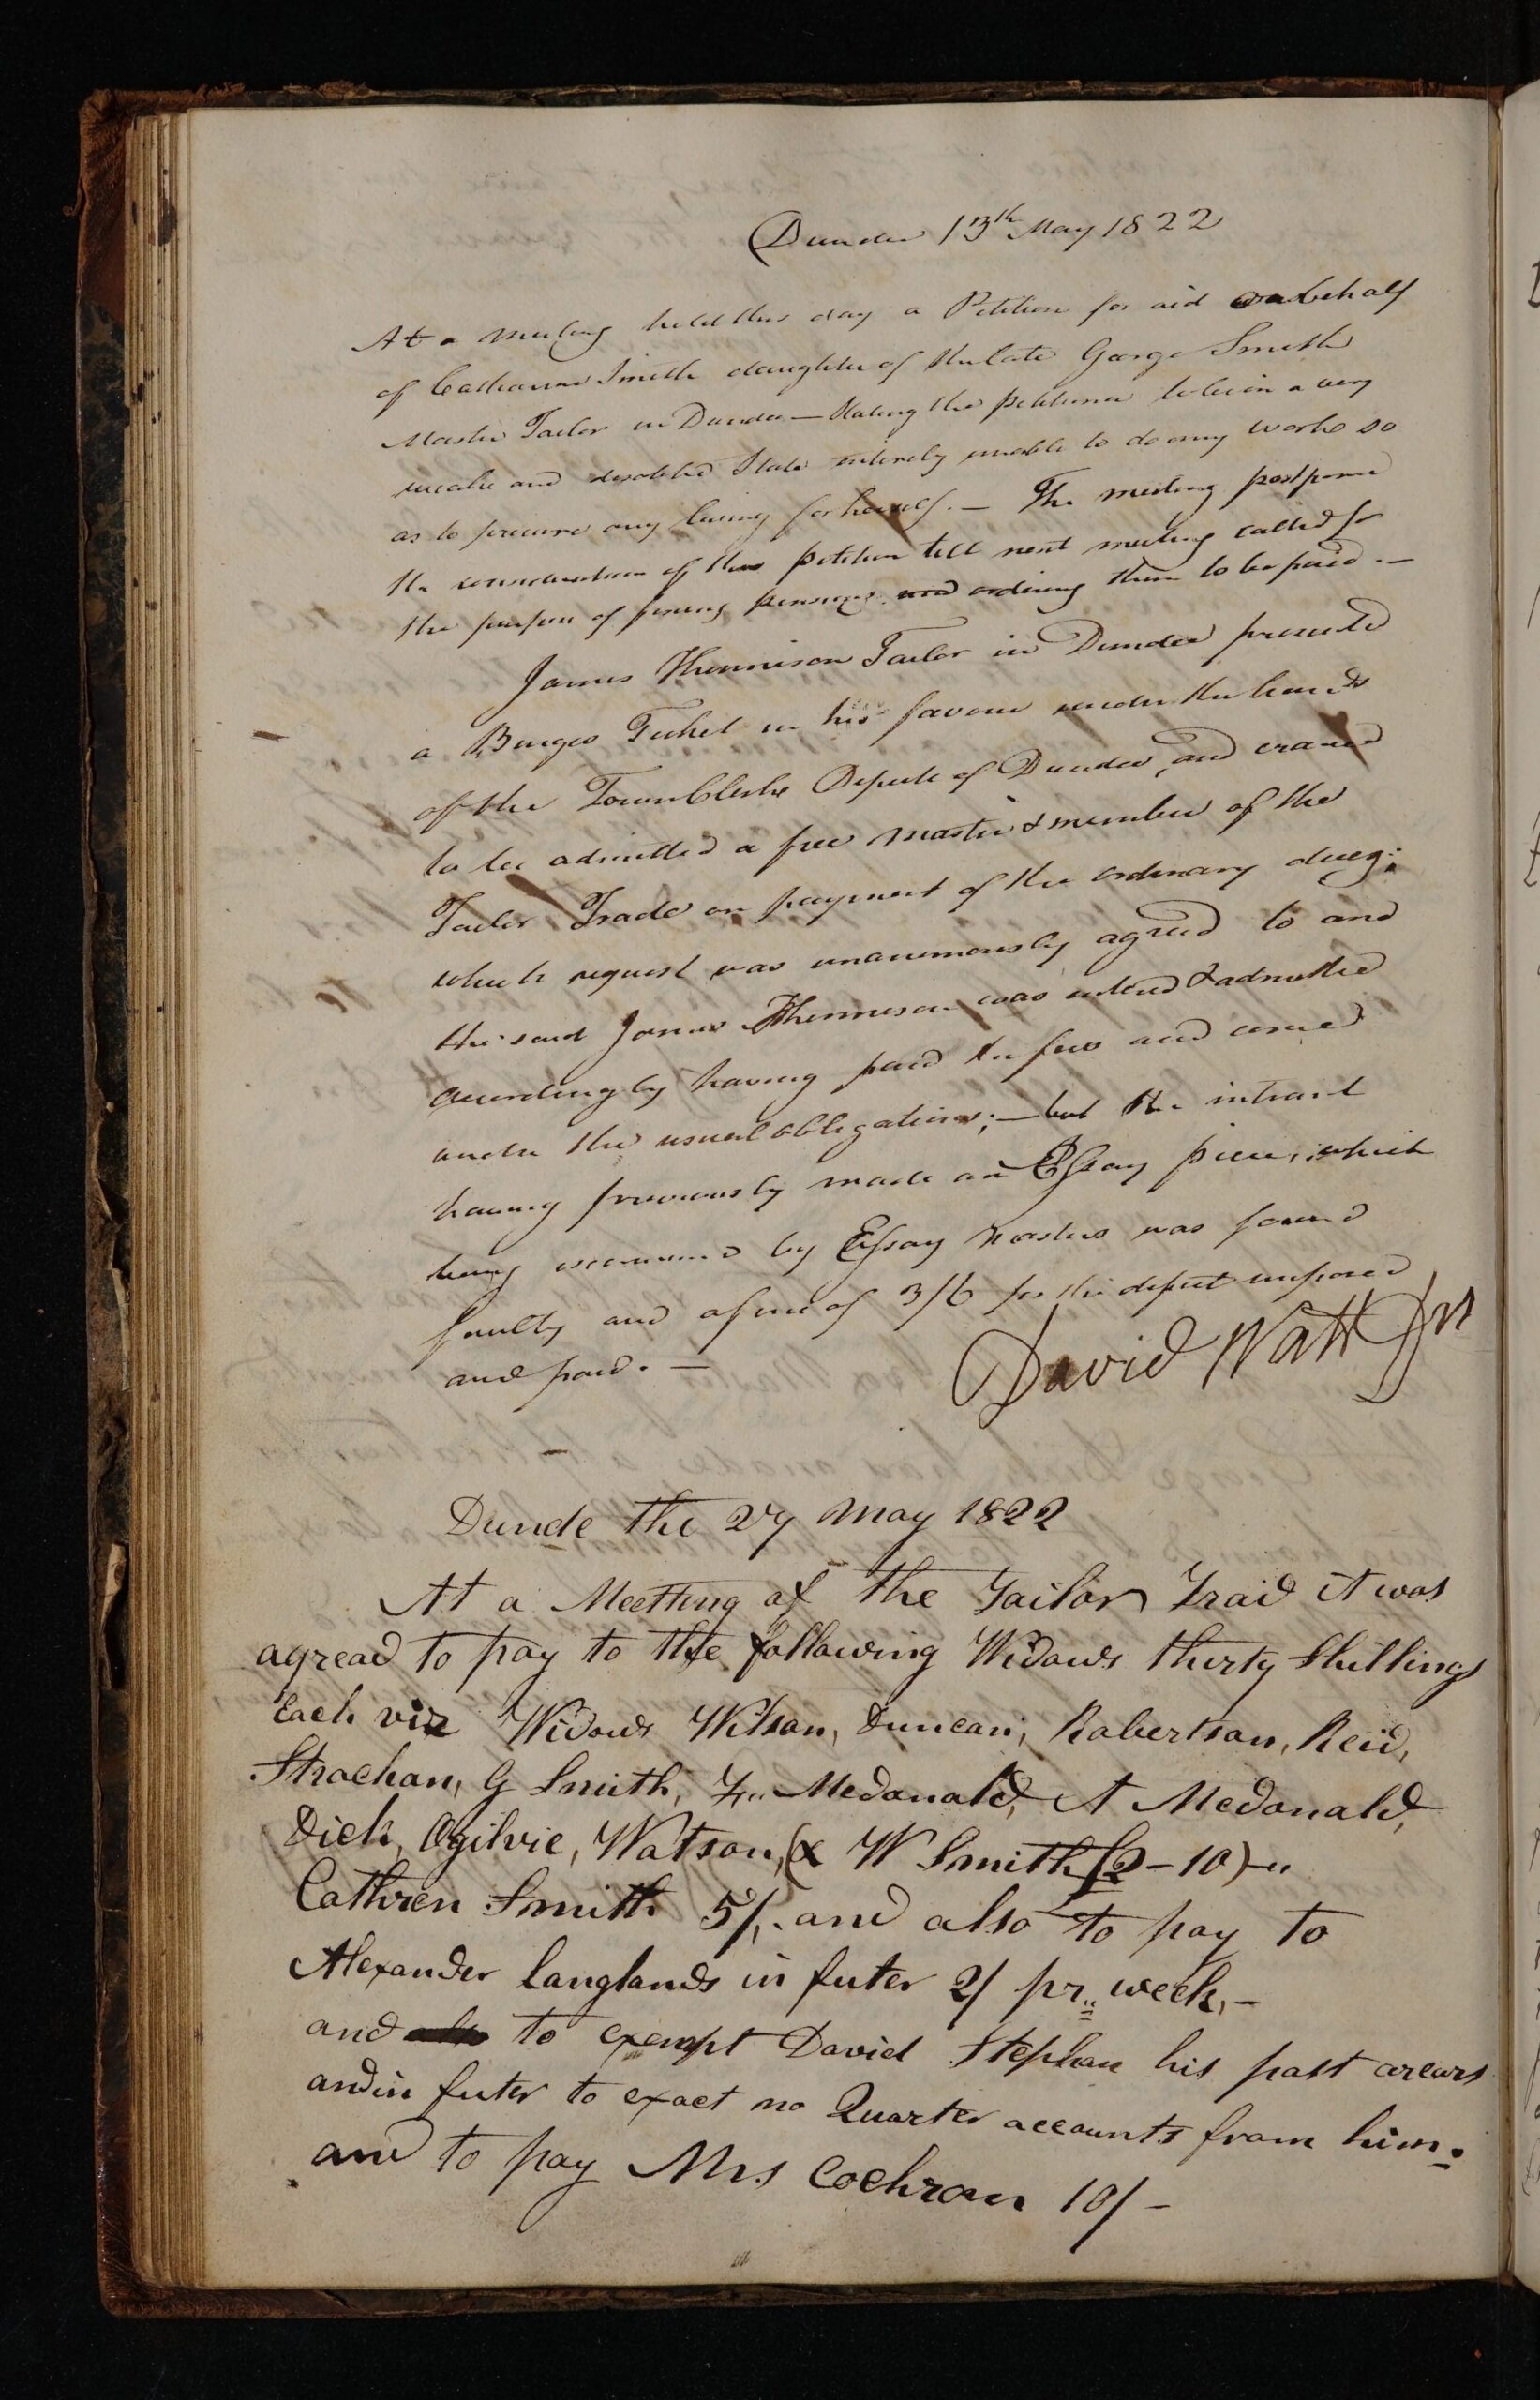 Dundee 13th May 1822
At a meeting held this day a Petition for aid on behalf
of Catharine Smith daughter of the late George Smith
Master Tailor in Dundee — Stating the petitioner to be in a very
weake and State entirely unable to do any work so
as to procure any living for herself. — The meeting postpone
the consideration of this petition till next meeting called for
the purpose of pensions and ordering them to be paid. —
James Thomison Tailor in Dundee presented
a Burges Ticket in his favour under the hands
of the Town Clerke Depute of Dundee, and craved
to be admitted a free master & member of the
Tailor Trade on payment of the ordinary dues;
which request was unanimously agreed to and
the said James Thomison was entered & admitted
accordingly having paid the fees and come
under the usual obligations; — but the intrant
having previously made an Essay piece, which
being examined by Essay Masters was found
faulty and a fine of 3/6 for the defect imposed
and paid. —
David Watt
Dunde the 27 May 1822
At a Meetting of the Tailor Traid it was
agread to pay to the following Widows thirty Shillings
Each viz Widows Wilson, Duncan, Robertson, Reid,
Strachan, G Smith, Mcdonald, A Mcdonald,
Dick, Ogilvie, Watson, & W Smith (2-10)
Cathren Smith 5/. and also to pay to
Alexander Langlands in futer 2/ pr. week, -
and to exempt David Stephen his past arears
and in futer to exact no Quarter accounts from him.
and to pay Mrs Cochran 10/-